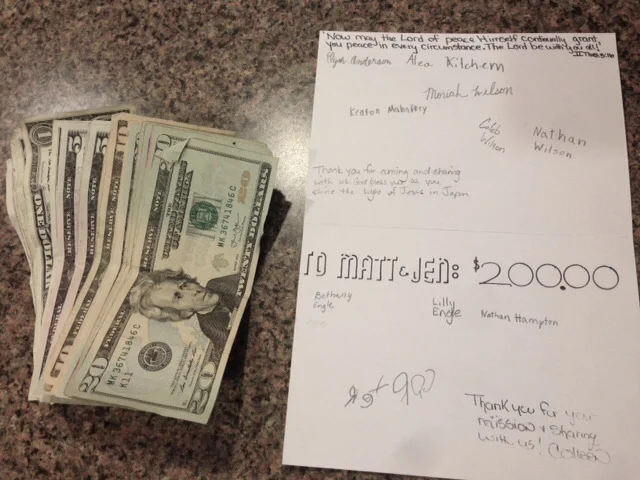 "Now may the Lord of peace Himself continually grant
you peace in every circumstance. The Lord be with you all!"
Alea Kitchem
Moriah Wilson
Kraton Mahaffey
Caleb
Wilson
Nathan
Wilson
Thank you for coming and sharing
with us. God bless you as you
the Light of Jesus in Japan
TO MATT & JEN: $200.00
Bethany
Engle
Lilly
Engle
Nathan Hampton
Thank you for your
mission & sharing
with us! Colleen
MK 36741846 C
20
TWENTY DOLLARS
MK 36741846 C
K11
20
20